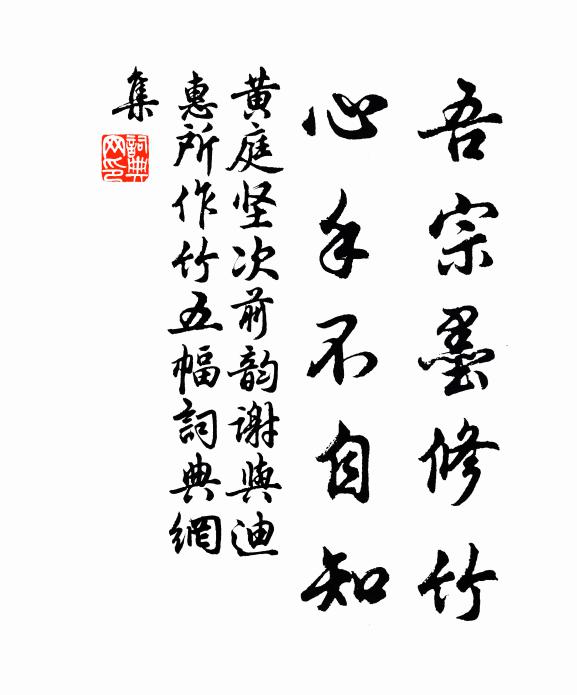 吾宗墨修竹
心手不自知
黄庭坚次前韵谢與迪
惠所作竹五幅詞典網
集
詞典
网印